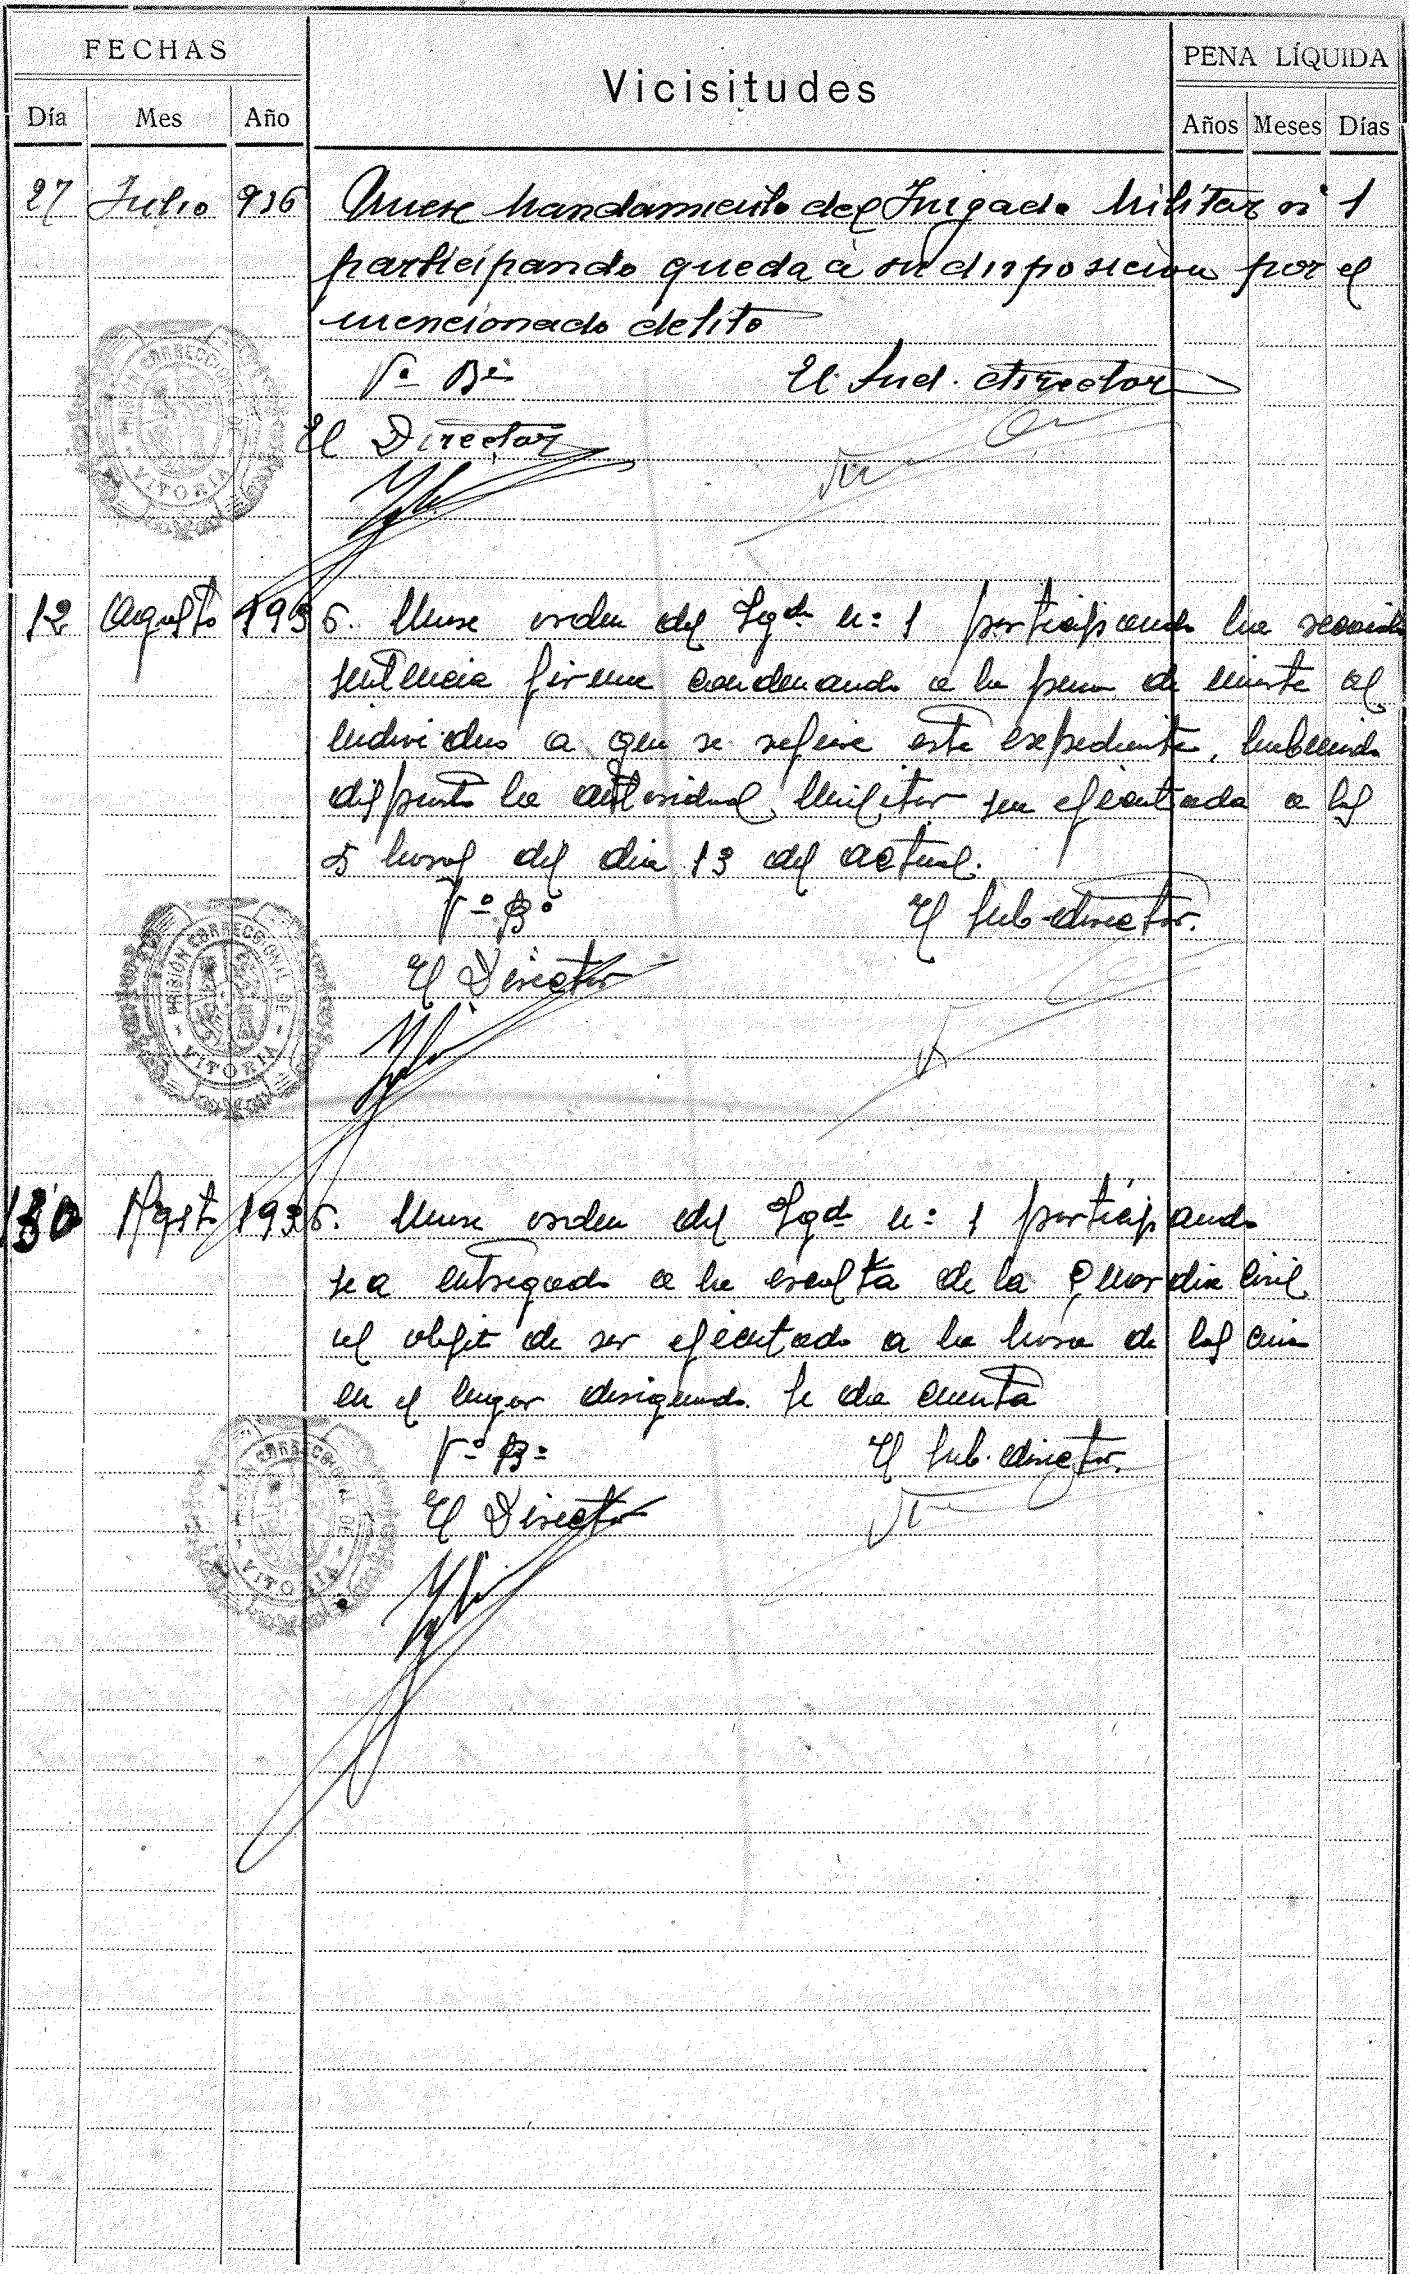 FECHAS
Vicisitudes
PENA LÍQUIDA
Día Mes Año
Años Meses Días
27 Julio 936 Unese Mandamiento del Juzgado Militar nº 1
participando queda à su disposición por el
mencionado delito
Vº Bº El Sud. director
El Director
PRISIÓN CORRECCIONAL DE VITORIA
12 Agosto 1936. Unese orden del Jgdo nº 1 participando ha recaido
sentencia firme condenando a la pena de muerte al
individuo a que se refiere este expediente, habiendo
dispuesto la autoridad Militar sea ejecutada a las
5 horas del dia 13 del actual.
Vº Bº El Sub-director.
El Director
PRISIÓN CORRECCIONAL DE VITORIA
Agsto 1936. Unese orden del Jgdo nº 1 participando
sea entregado a la escolta de la Guardia Civil
al objeto de ser ejecutado a la hora de las
en el lugar designado. Se da cuenta
Vº Bº El Sub-director.
El Director
PRISIÓN CORRECCIONAL DE VITORIA